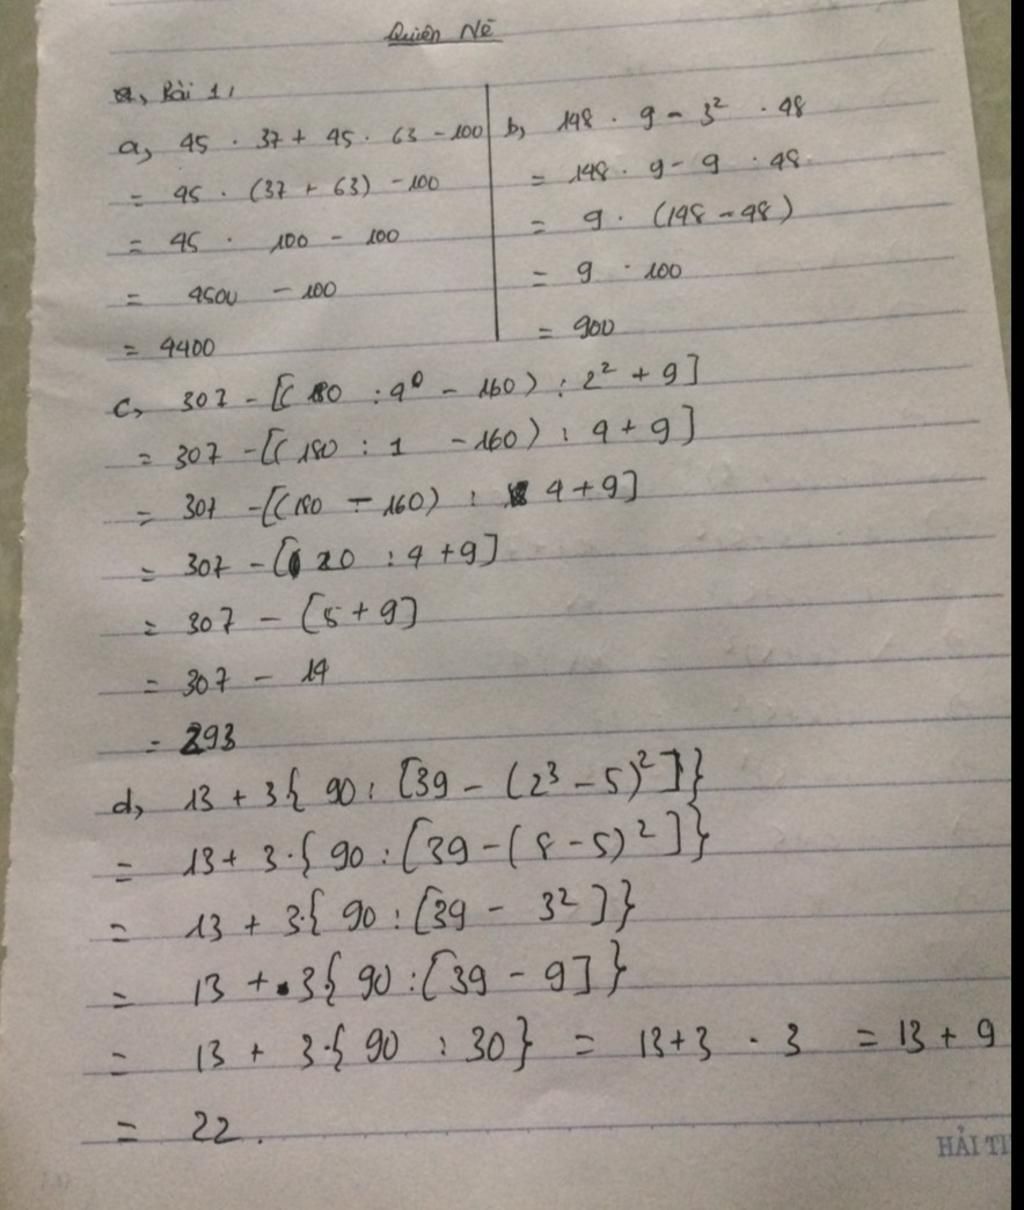 Quiên Nè
Bài 1,
a, 45 . 37 + 45 . 63 - 100
= 45 . (37 + 63) - 100
= 45 . 100 - 100
= 4500 - 100
= 4400
b, 148 . 9 - 3² . 48
= 148 . 9 - 9 . 48
= 9 . (148 - 48)
= 9 . 100
= 900
c, 307 - [( 180 : 4⁰ - 160) : 2² + 9]
= 307 - [( 180 : 1 - 160) : 4 + 9]
= 307 - [( 180 - 160) : 4 + 9]
= 307 - [ 20 : 4 + 9]
= 307 - [5 + 9]
= 307 - 14
= 293
d, 13 + 3{ 90 : [39 - (2³ - 5)²]}
= 13 + 3.{ 90 : [39 - ( 8 - 5)²]}
= 13 + 3.{ 90 : [39 - 3²]}
= 13 + 3{ 90 : [39 - 9]}
= 13 + 3.{ 90 : 30} = 13 + 3 . 3 = 13 + 9
= 22.
HẢI TI